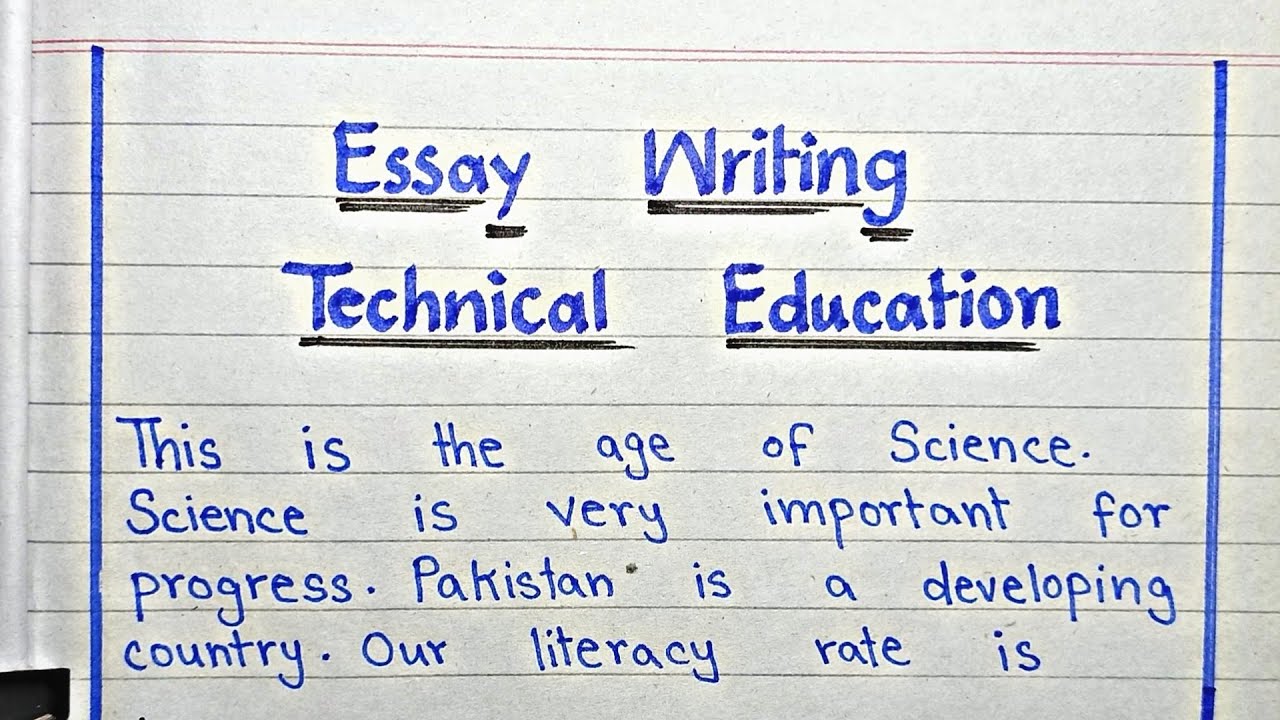 Essay Writing
Technical Education
This is the age of Science.
Science is very important for
progress. Pakistan is a developing
country. Our literacy rate is